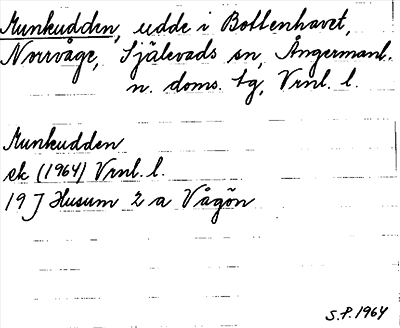 Munkudden, udde i Bottenhavet,
Norrvåge, Själevads sn, Ångermanl.
n. doms. tg, Vrnl. l.
Munkudden
sk (1964) Vrnl. l.
19 J Husum 2 a Vågön
S.P. 1964